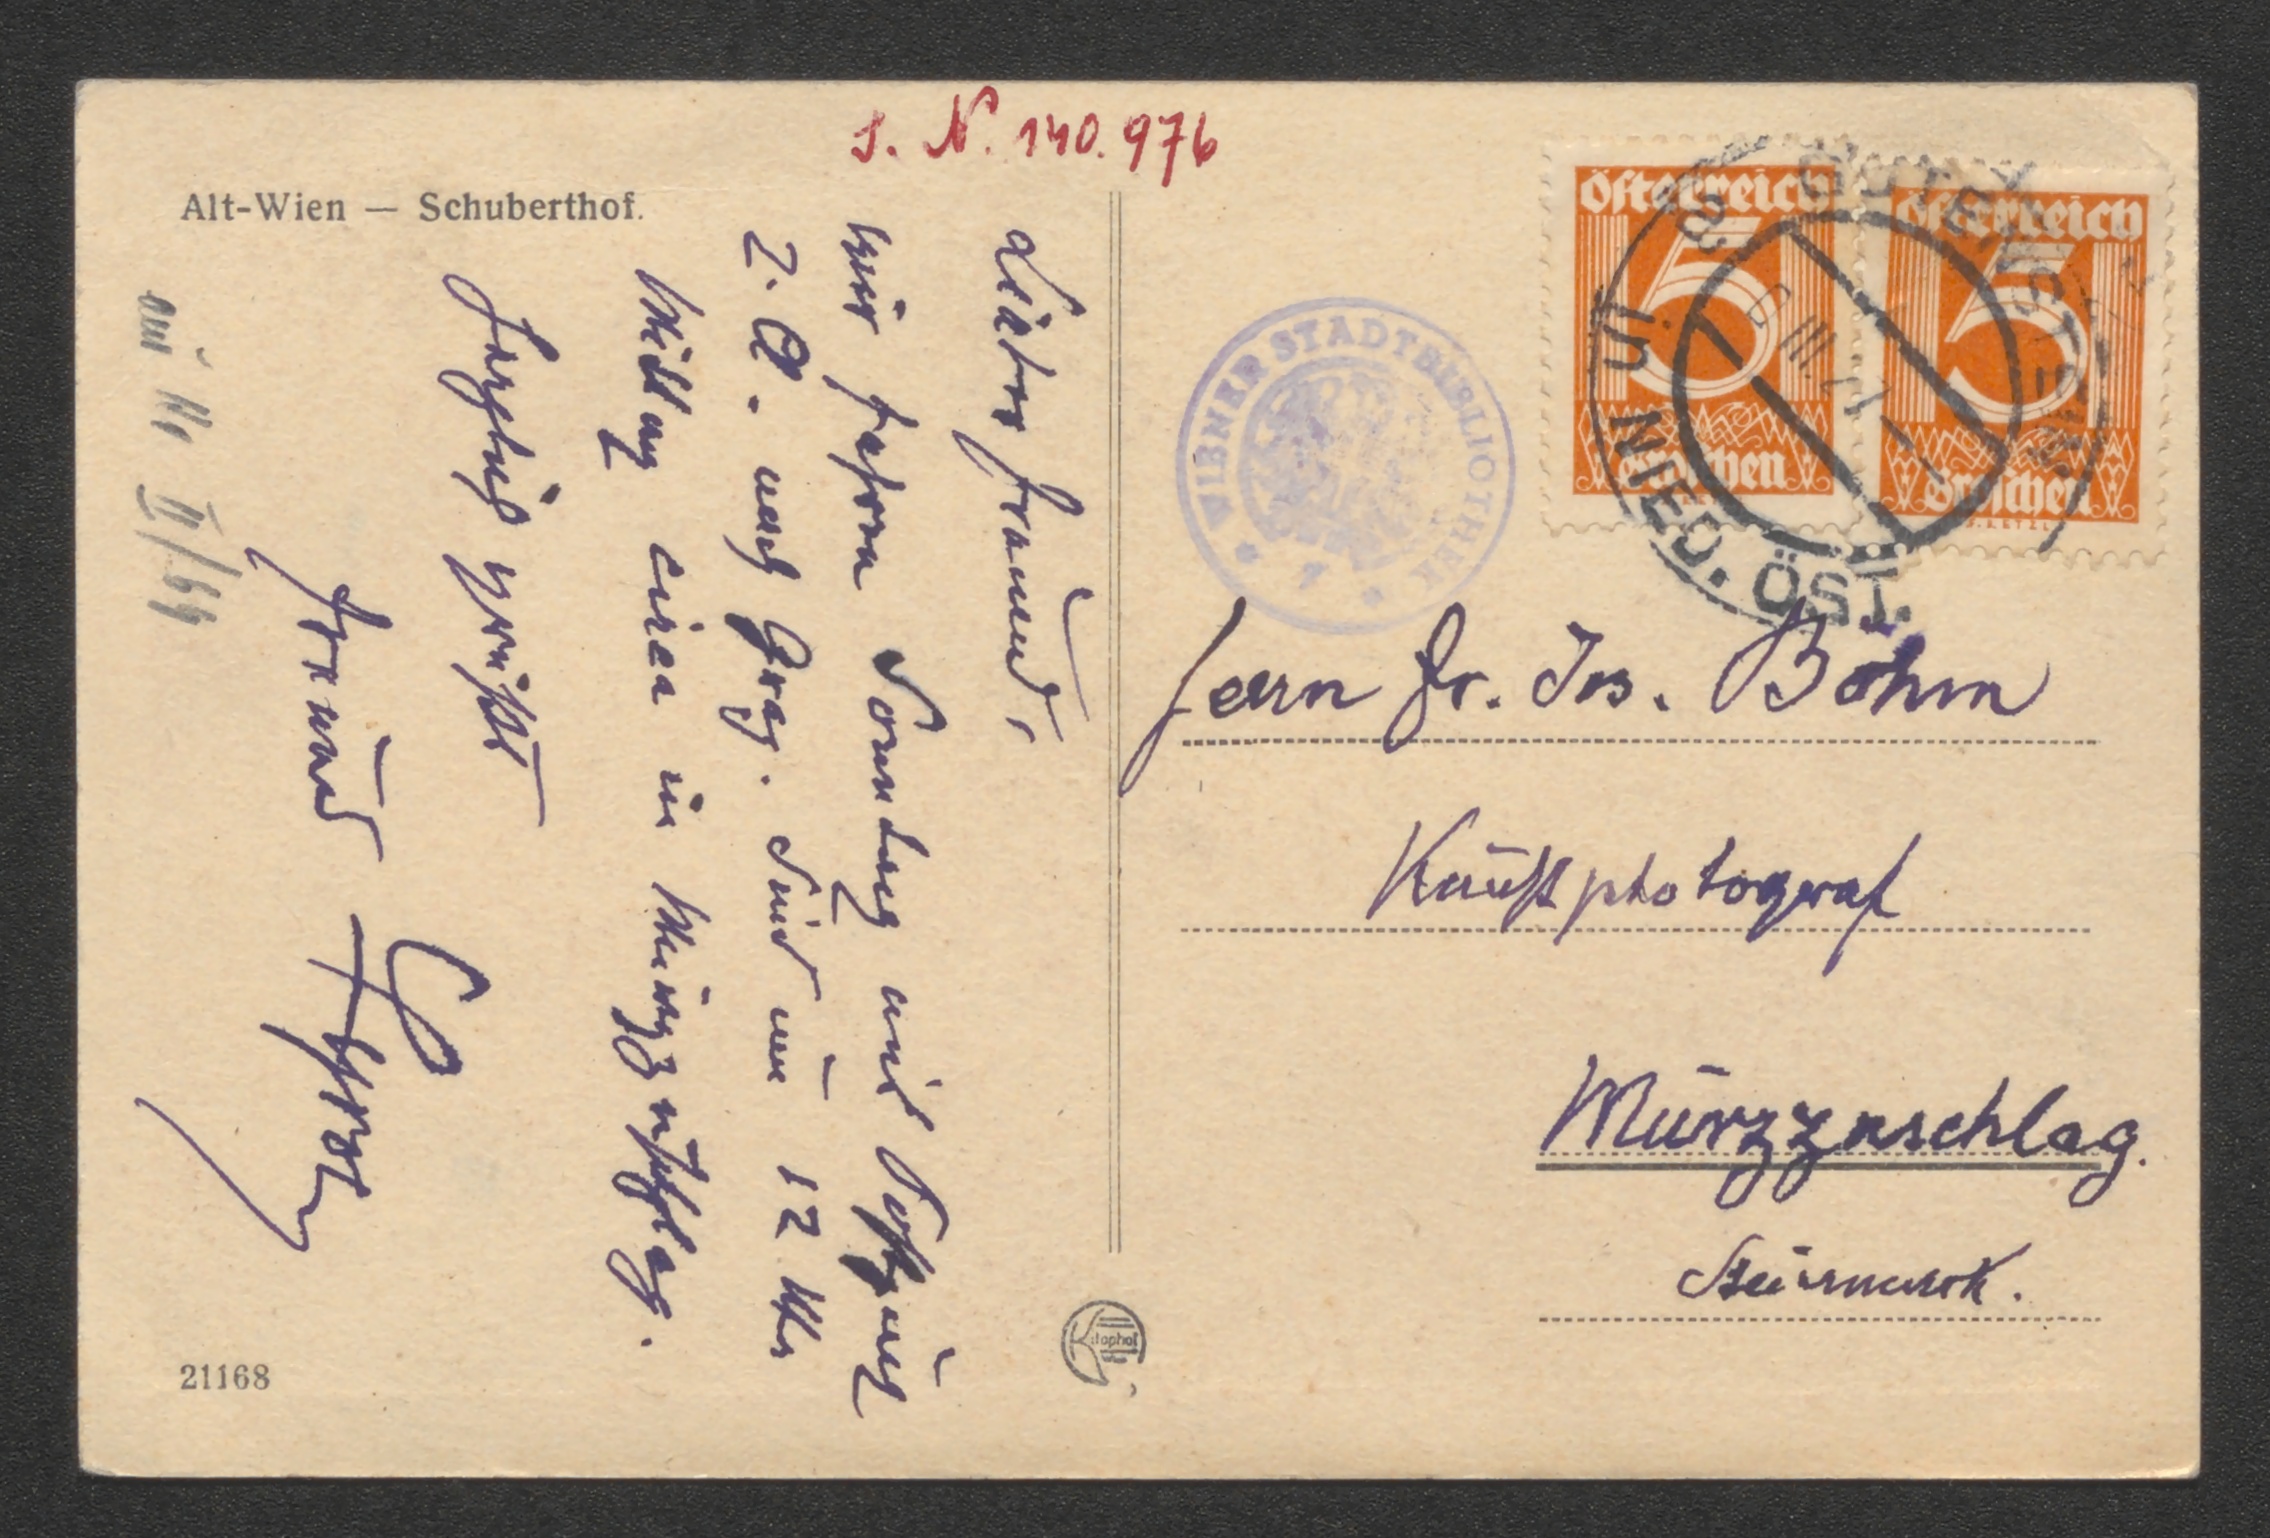 S. N. 140.976
Alt-Wien — Schuberthof.
Lieber Freund,
wir fahren Sonntag mit Postzug
2. Cl. nach Graz. Sind um 12 Uhr
Mittag circa in Mürzzuschlag.
Herzlich grüßt
Freund
21168
Kilophot
WIENER STADTBIBLIOTHEK
Österreich
5
Groschen
Österreich
5
Groschen
GUTENSTEIN
IN NIED. ÖST.
Herrn Dr. Jos. Böhm
Kunstphotograf
Mürzzuschlag.
Steiermark.